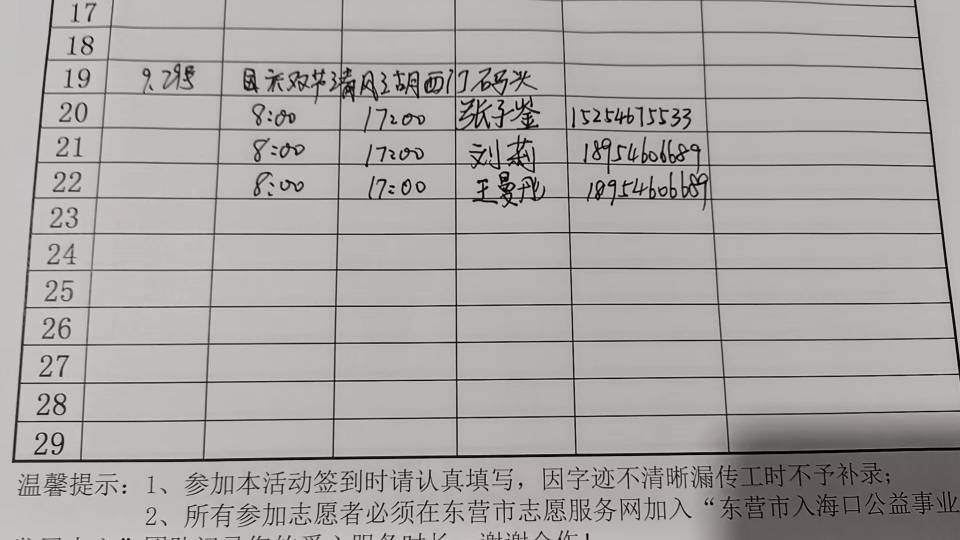 17
18
19 9.29号 国庆双节清风湖西门码头
20 8:00 17:00 张子鉴 15254675533
21 8:00 17:00 刘莉 18954606689
22 8:00 17:00 王曼彤 18954606689
23
24
25
26
27
28
29
温馨提示：1、参加本活动签到时请认真填写，因字迹不清晰漏传工时不予补录；
2、所有参加志愿者必须在东营市志愿服务网加入“东营市入海口公益事业